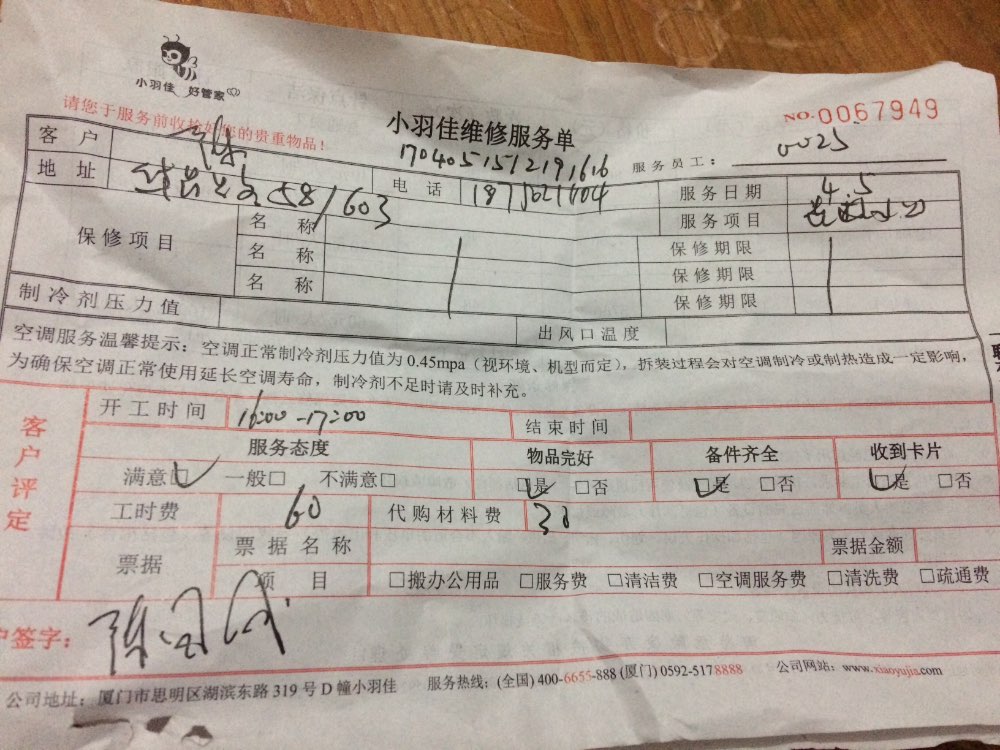 小羽佳 好管家
请您于服务前收检好您的贵重物品！
小羽佳维修服务单
NO.0067949
1704051512191616
服务员工： 0025
客户 陈
地址 58/603 电话 服务日期 4.5
保修项目 名称 服务项目
名称 保修期限
名称 保修期限
保修期限
制冷剂压力值 出风口温度
空调服务温馨提示：空调正常制冷剂压力值为0.45mpa（视环境、机型而定），拆装过程会对空调制冷或制热造成一定影响，
为确保空调正常使用延长空调寿命，制冷剂不足时请及时补充。
客户评定
开工时间 16:00-17:00 结束时间
服务态度 物品完好 备件齐全 收到卡片
满意□ 一般□ 不满意□ □是 □否 □是 □否 □是 □否
工时费 60 代购材料费 30
票据 票据名称 票据金额
项目 □搬办公用品 □服务费 □清洁费 □空调服务费 □清洗费 □疏通费
户签字：
公司地址：厦门市思明区湖滨东路319号D幢小羽佳 服务热线：(全国) 400-6655-888 (厦门) 0592-5178888 公司网站：www.xiaoyujia.com